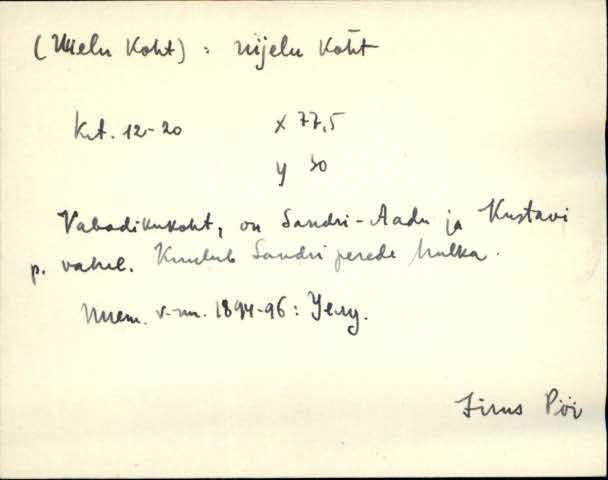 (Uielu Koht) : uijelu koht
Krt. 12-20 x 77,5
y 30
Vabadikukoht, on Sandri-Aadu ja Kustavi
p. vahel. Kuulub Sandri perede hulka.
v-nn. 1894-96:
Pöi